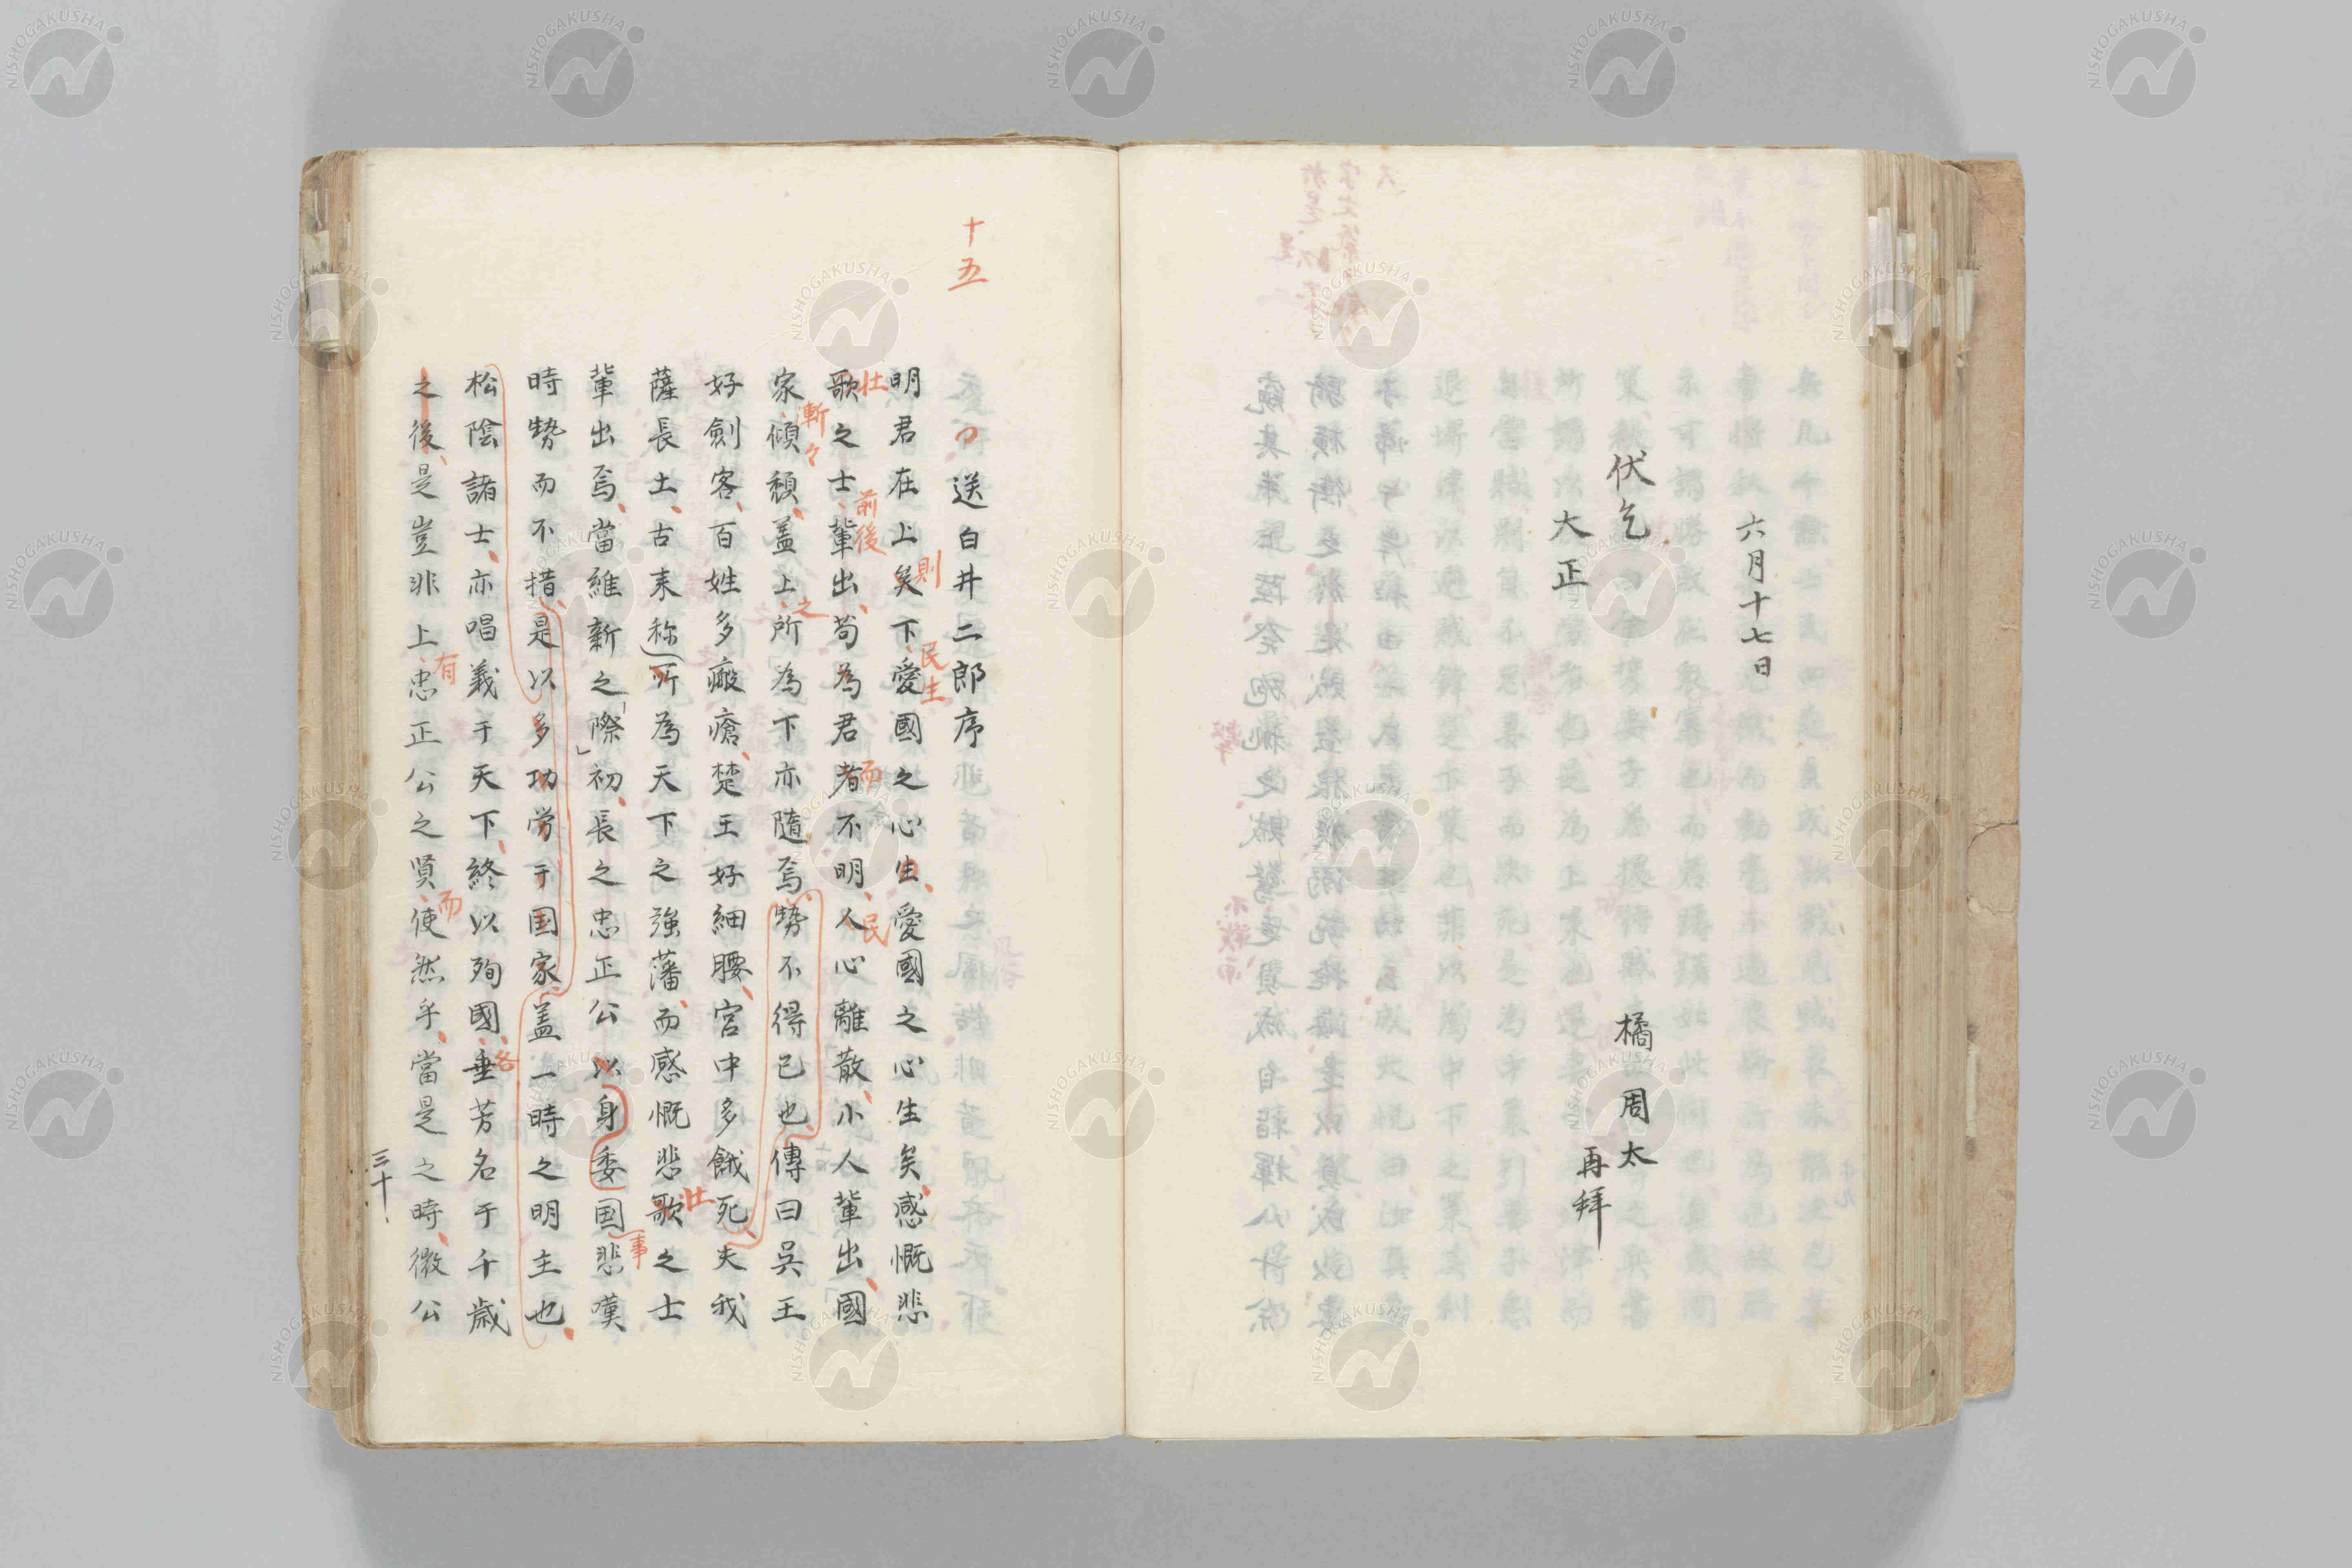 六月十七日
伏乞
橘周太
再拜
大正
十五
送白井二郎序
明君在上矣下愛國之心生愛國之心生矣感慨悲
則
民生
歌之士輩出苟為君者不明人心離散小人輩出國
壮
前後
而
民
家傾頽蓋上所為下亦隨焉勢不得已也傳曰吳王
漸々
之
好劍客百姓多瘢瘡楚王好細腰宮中多餓死夫我
薩長土古来称所為天下之強藩而感慨悲歌之士
壮
輩出焉當維新之際初長之忠正公以身委国悲嘆
事
時勢而不措是以多功労于国家蓋一時之明主也
松陰諸士亦唱義于天下終以殉國垂芳名于千歳
各
之後是豈非上忠正公之賢使然乎當是之時微公
有
而
三十
NISHOGAKUSHA